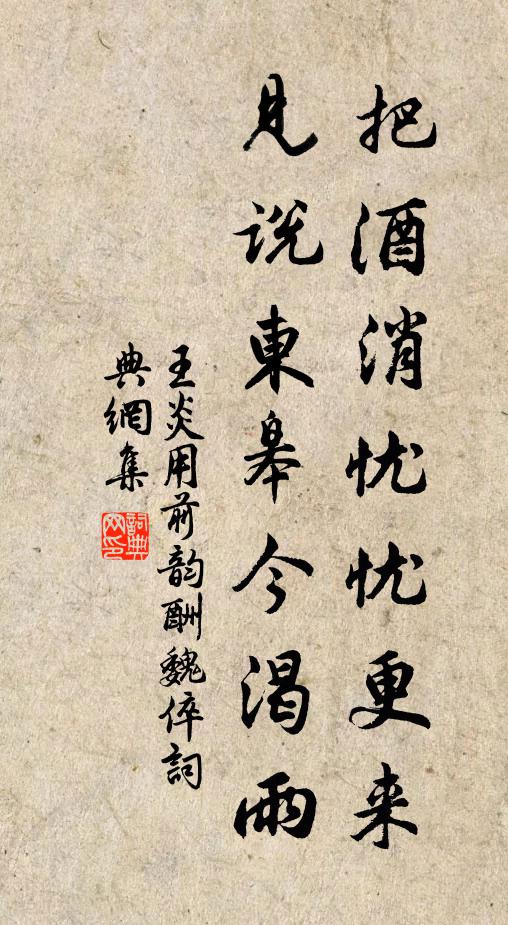 把酒消忧忧更来
見説東皋今渴雨
王炎用前韵酬魏倅詞
典網集
詞典网印